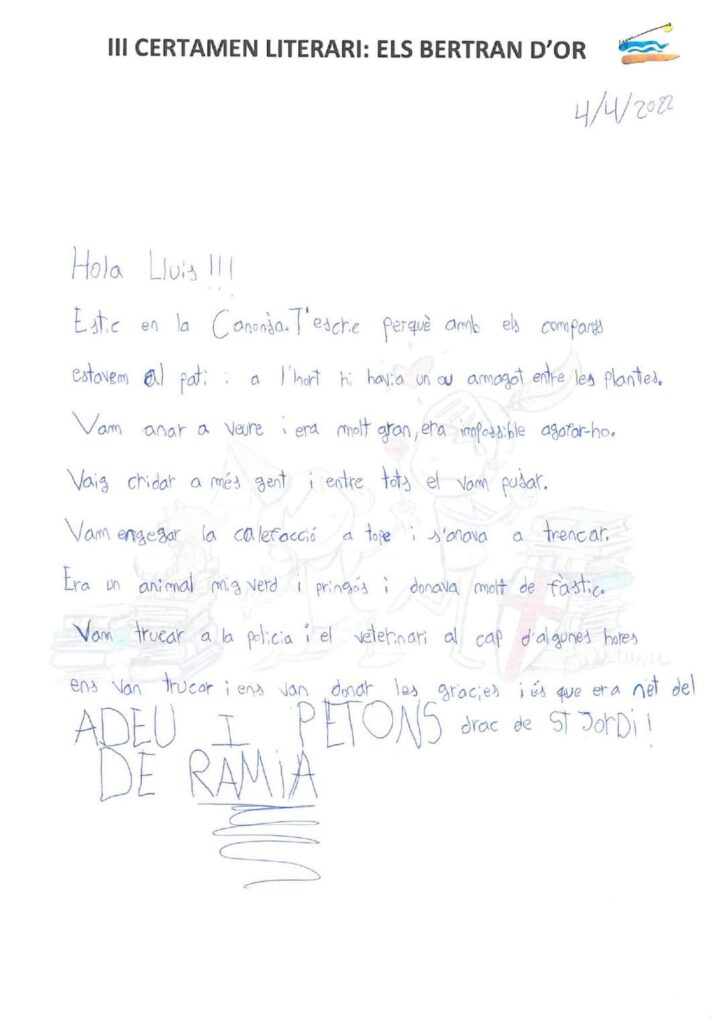 III CERTAMEN LITERARI: ELS BERTRAN D'OR
4/4/2022
Hola Lluis!!!
Estic en la Canonja. T'escric perquè amb els companys
estavem al pati i a l'hort hi havia un ou amagat entre les plantes.
Vam anar a veure i era molt gran, era impossible agafar-ho.
Vaig chidar a més gent i entre tots el vam pujar.
Vam engegar la calefacció a tope i s'anava a trencar.
Era un animal mig verd i pringós i donava molt de fàstic.
Vam trucar a la policia i el veterinari al cap d'algunes hores
ens van trucar i ens van donar les gracies i és que era nét del
drac de ST JORDI!
ADEU I PETONS
DE RAMIA